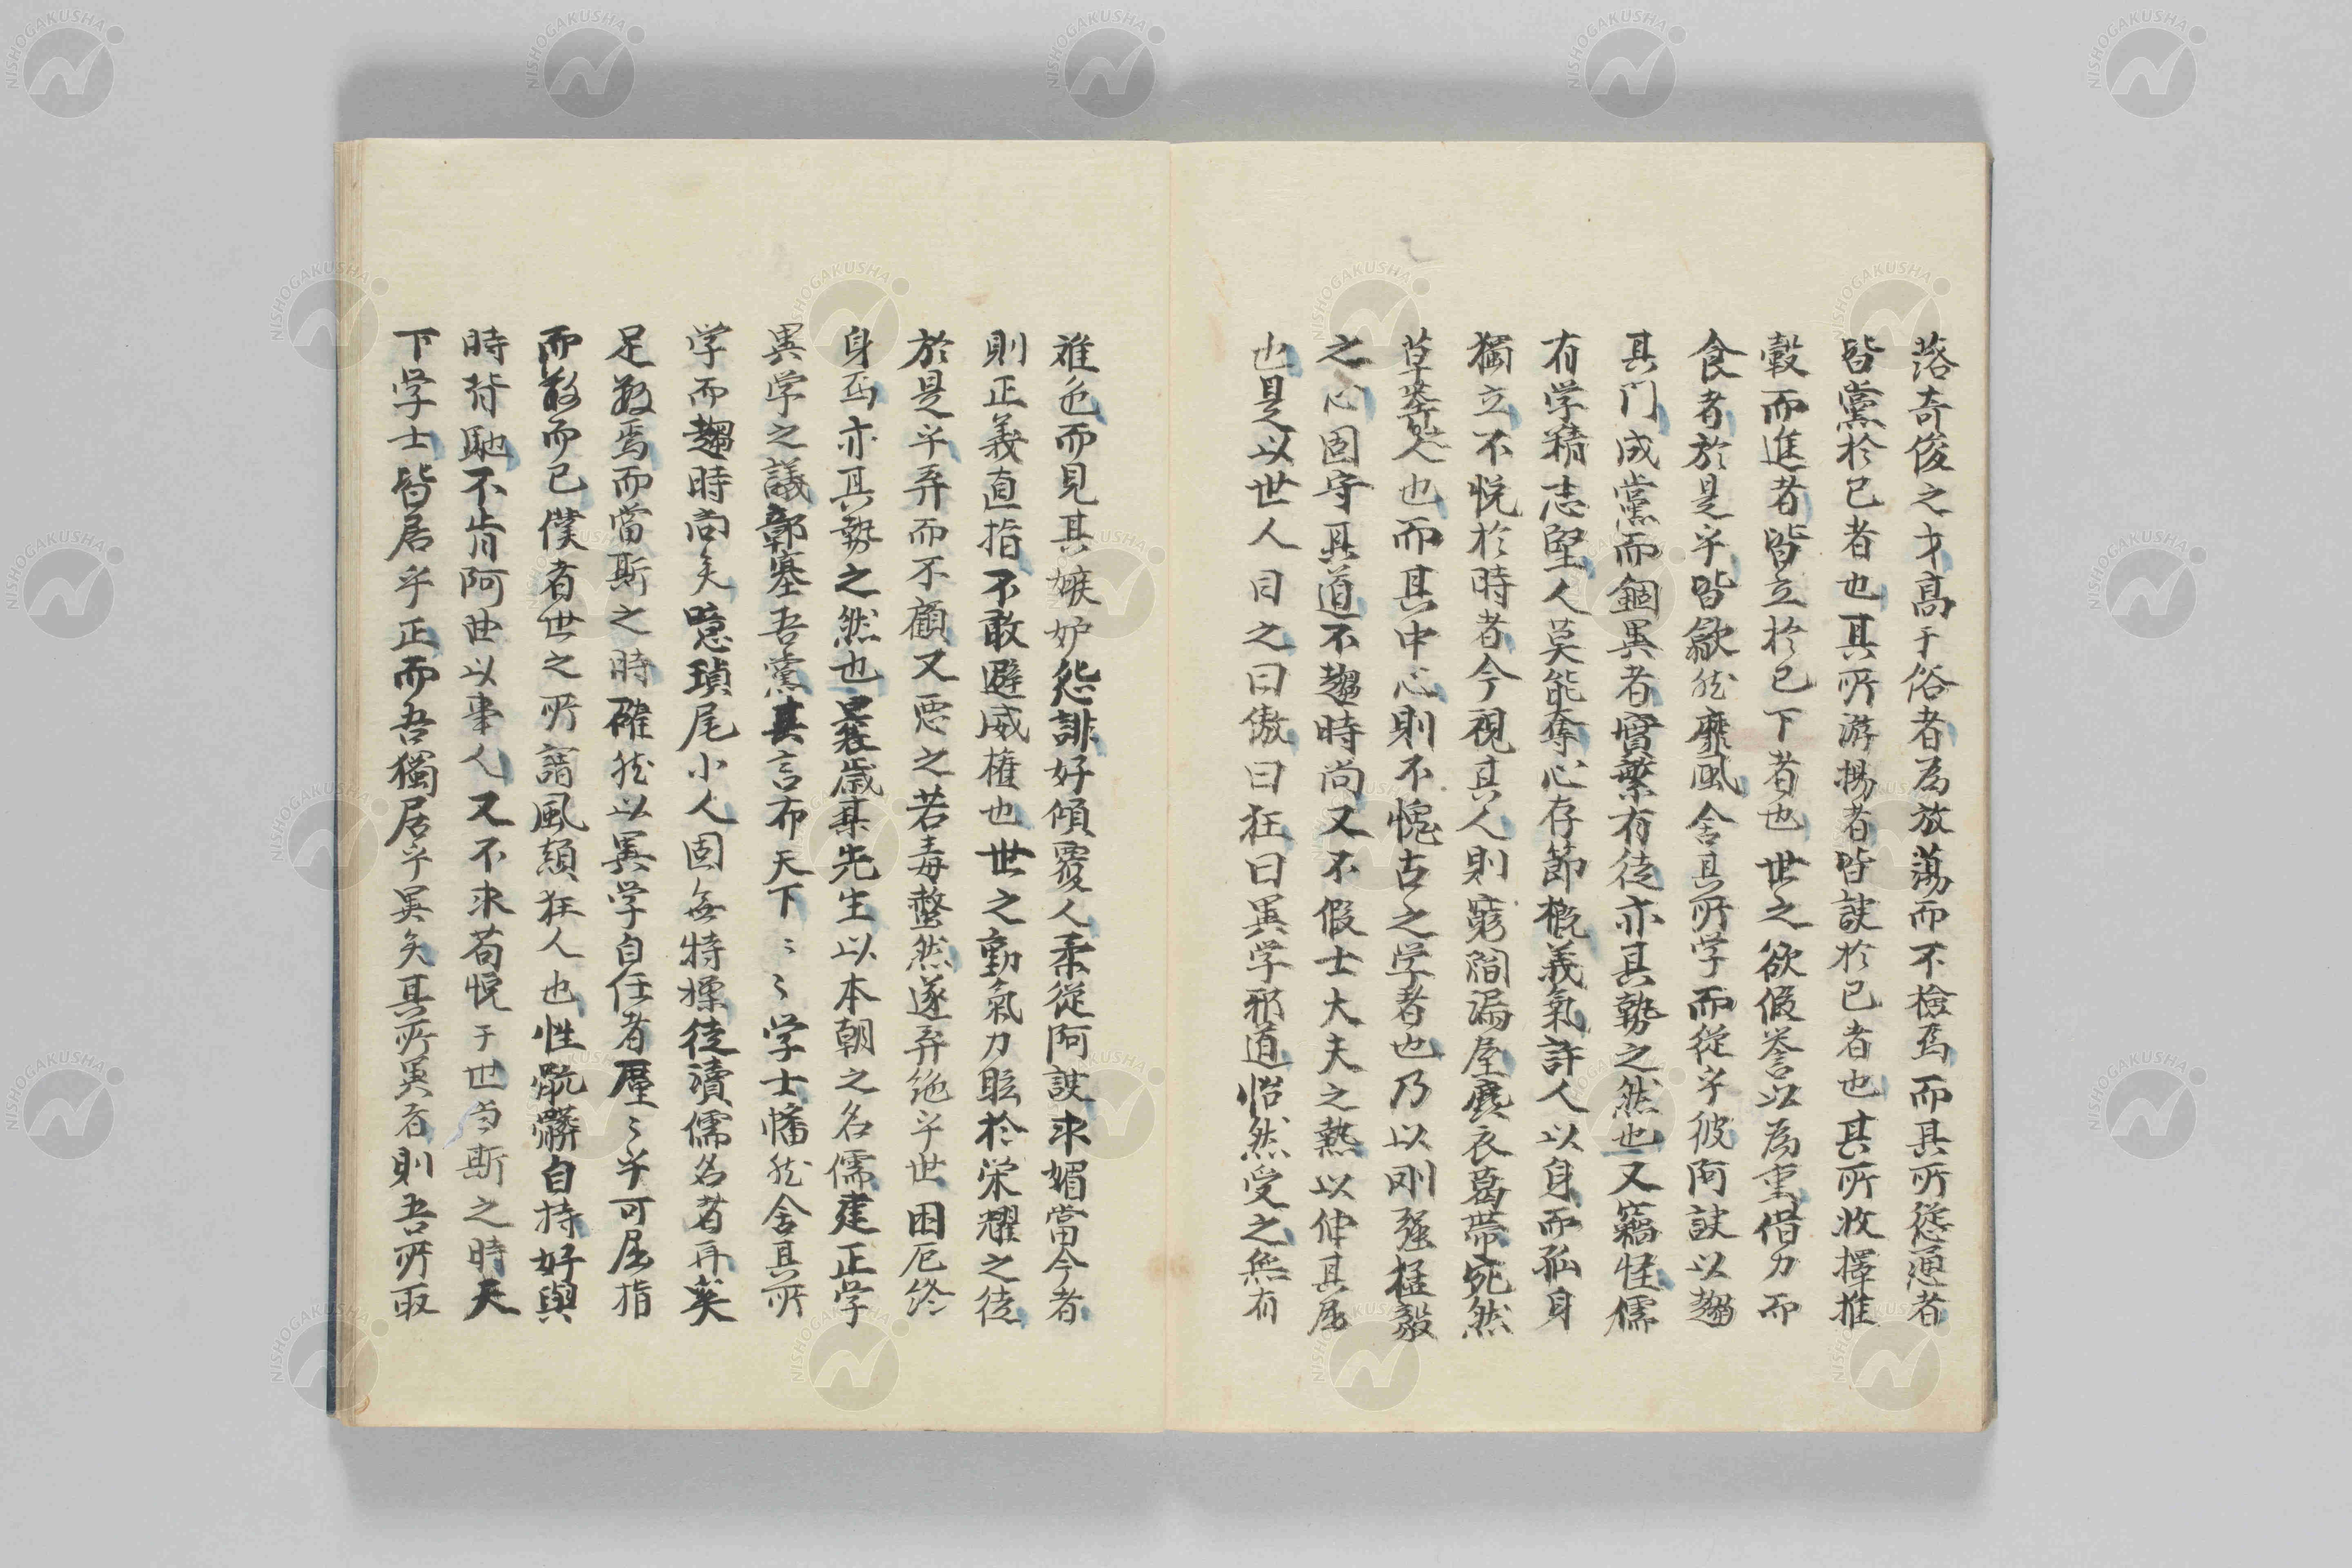 落奇俊之才高于俗者為放蕩而不檢焉而其所慫慂者
皆黨於己者也其所游揚者皆諛於己者也其所收擇推
轂而進者皆立於己下者也世之欲假誉以為重借力而
食者於是乎皆歙然靡風舎其所学而従乎彼阿諛以趨
其門成黨而錮異者實繁有徒亦其勢之然也又竊怪儒
有学精志堅人莫能奪心存節概義氣許人以身而孤身
獨立不悦於時者今視其人則窮閻漏屋麁衣葛帶宛然
草莽人也而其中心則不愧古之学者也乃以剛强猛毅
之心固守其道不趨時尚又不假士大夫之熱以伸其屈
也是以世人目之曰傲曰狂曰異学邪道怡然受之無有
雄色而見其嫉妒怨誹好傾覆人柔從阿諛求媚當今者
則正義直指不敢避威權也世之動氣力眩於栄耀之徒
於是乎弃而不顧又惡之若毒螫然遂弃絶乎世困厄終
身焉亦其勢之然也曩歳某先生以本朝之名儒建正学
異学之議鄣塞吾黨其言布天下〻〻学士幡然舎其所
学而趨時尚矣噫瑣尾小人固無特操徒瀆儒名者再奚
足数焉而當斯之時確然以異学自任者歴〻乎可屈指
而数而已僕者世之所謂風顛狂人也性骯髒自持好與
時背馳不肯阿世以事人又不求苟悦于世当斯之時天
下学士皆居乎正而吾獨居乎異矣其所異者則吾所取